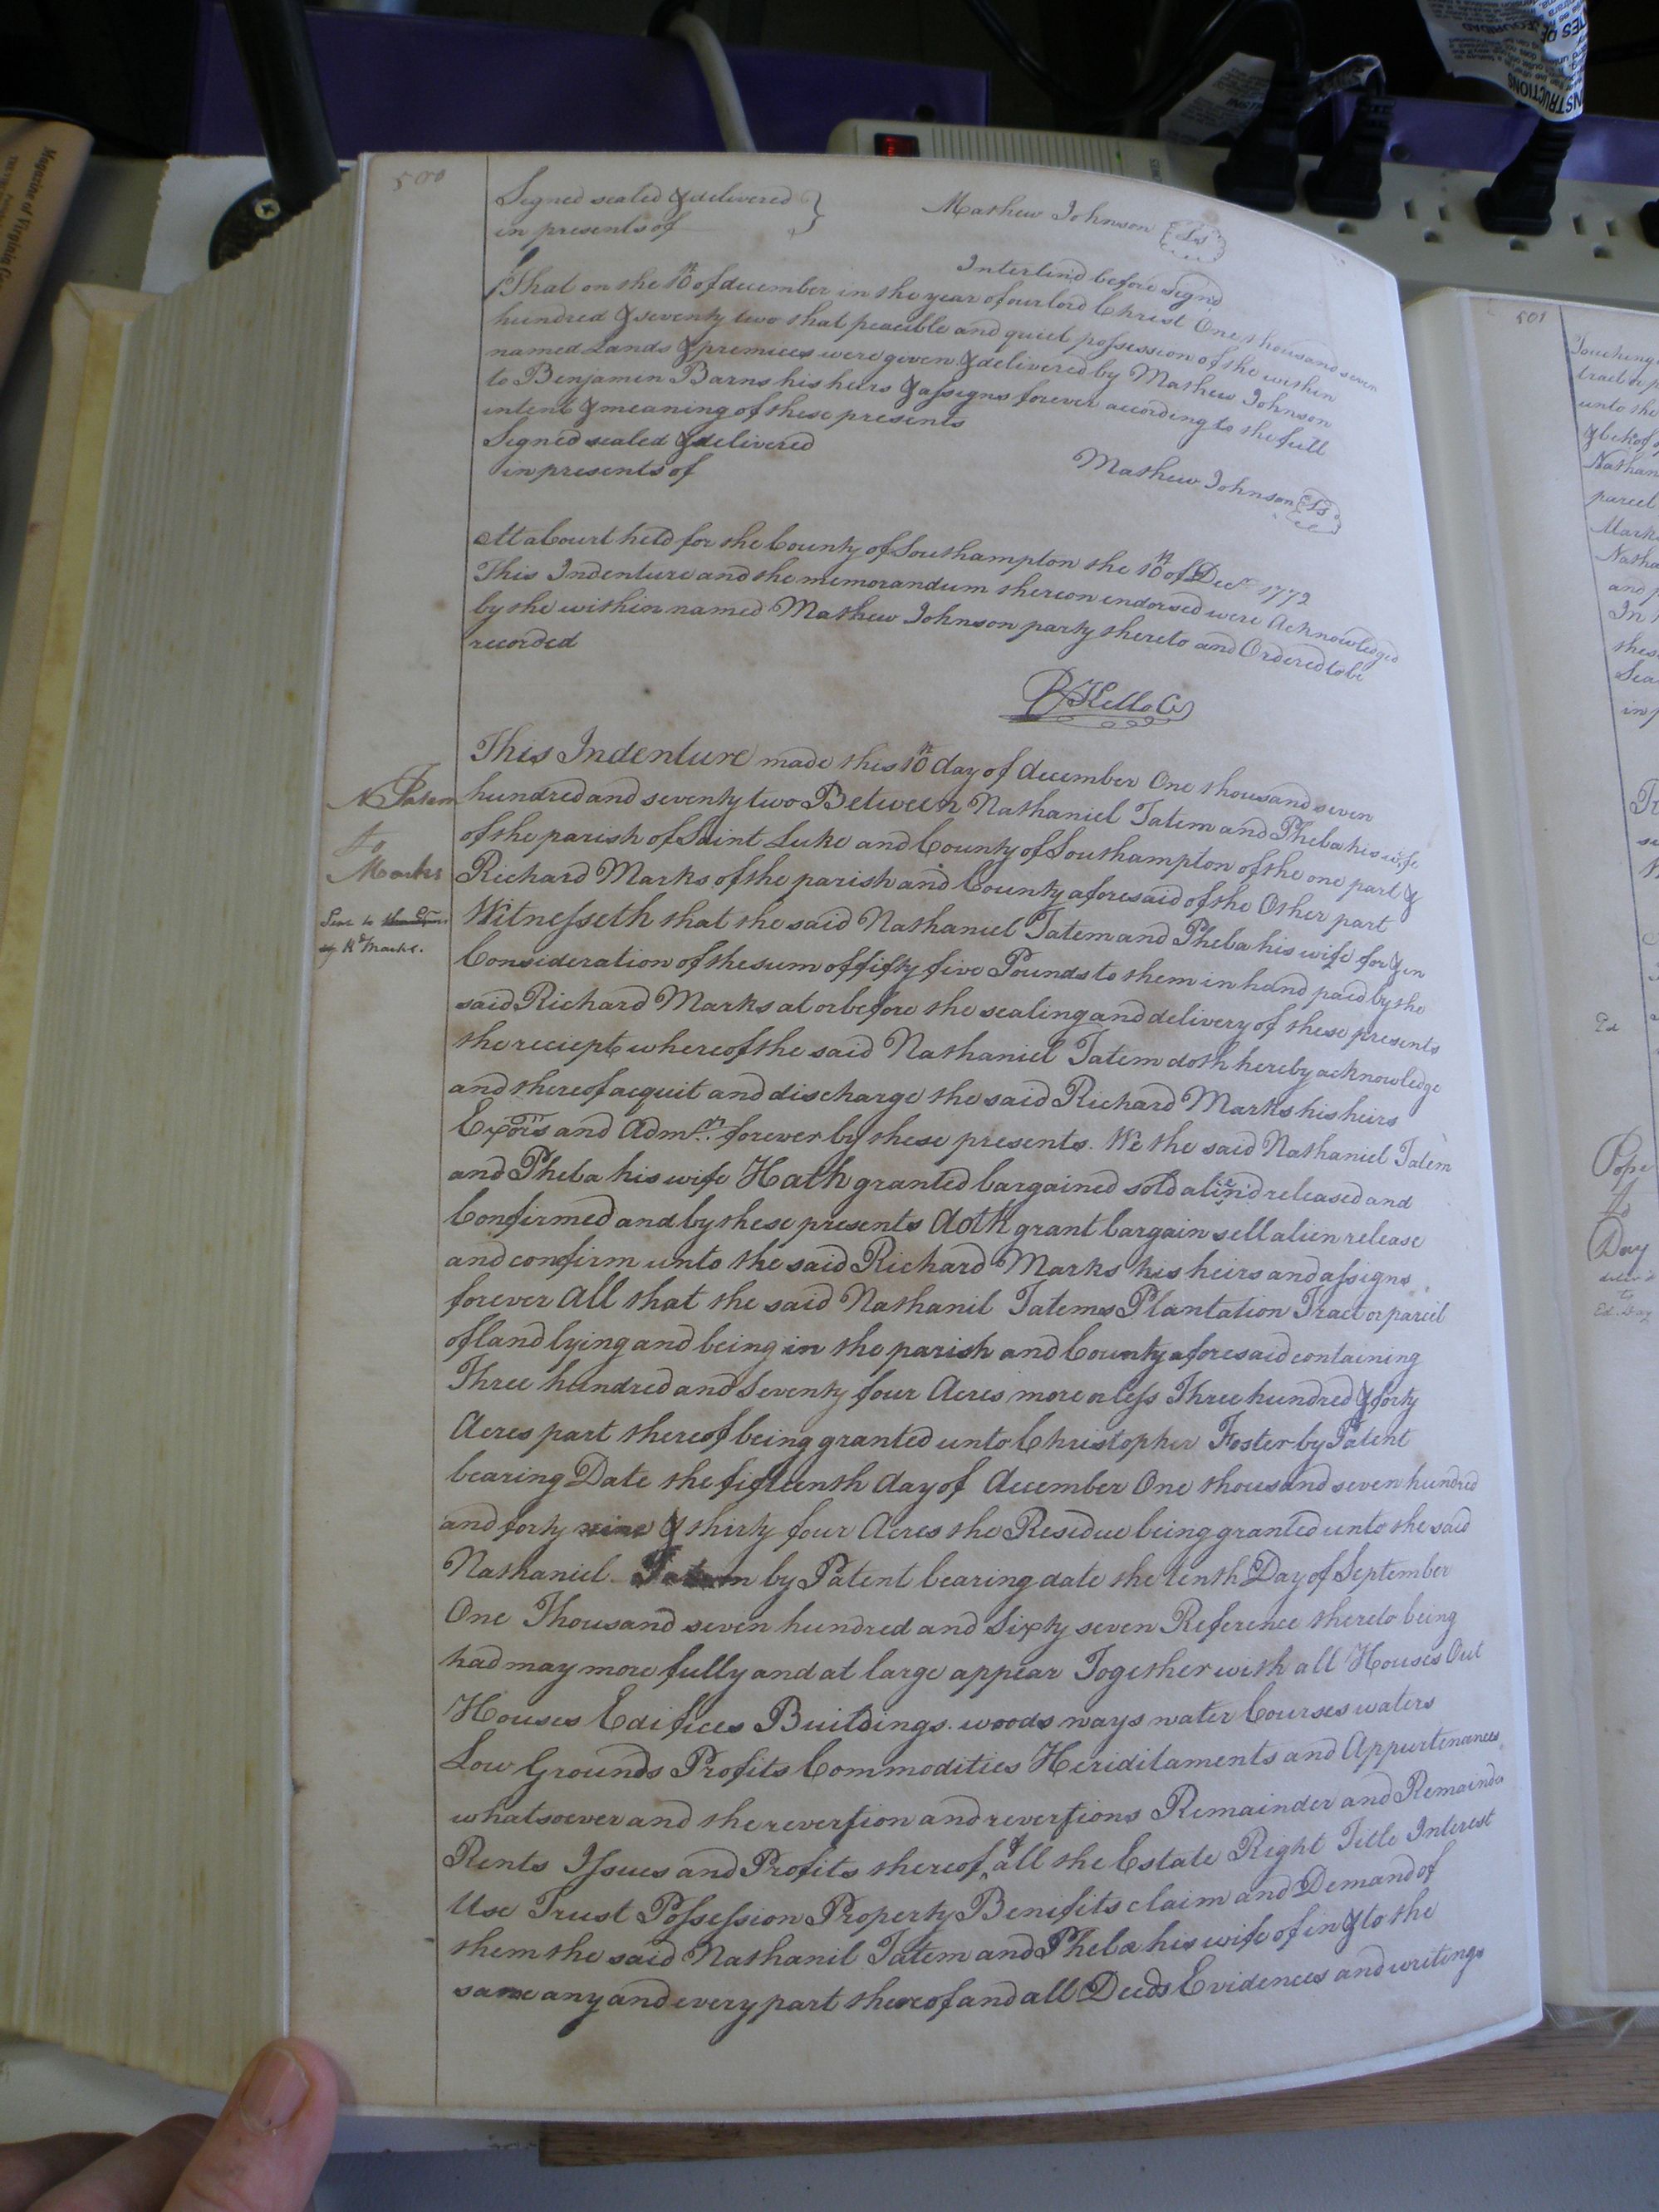 500
Signed sealed & delivered
in presents of
Mathew Johnson Ls
Interlin'd before Sign'd
That on the 10th of december in the year of our lord Christ One thousand seven
hundred & seventy two that peacible and quiet possession of the within
named Lands & premices were given & delivered by Mathew Johnson
to Benjamin Barns his heirs & assigns forever according to the full
intent & meaning of these presents
Signed sealed & delivered
in presents of
Mathew Johnson Ls
At a Court held for the County of Southampton the 10th of Decr 1772
This Indenture and the memorandum thereon endorsed were Acknowledged
by the within named Mathew Johnson party thereto and Ordered to be
recorded
R Kello C
N Tatem
to
Marks
Rd Marks.
This Indenture made this 10th day of december One thousand seven
hundred and seventy two Between Nathaniel Tatem and Pheba his wife
of the parish of Saint Luke and County of Southampton of the one part &
Richard Marks of the parish and County aforesaid of the Other part
Witnesseth that the said Nathaniel Tatem and Pheba his wife for & in
Consideration of the sum of fifty five Pounds to them in hand paid by the
said Richard Marks at or before the sealing and delivery of these presents
the reciept whereof the said Nathaniel Tatem doth hereby acknowledge
and thereof acquit and discharge the said Richard Marks his heirs
Exors and Admrs. forever by these presents. We the said Nathaniel Tatem
and Pheba his wife Hath granted bargained sold aliened released and
Confirmed and by these presents doth grant bargain sell alien release
and confirm unto the said Richard Marks his heirs and assigns
forever All that the said Nathanil Tatems Plantation Tract or parcel
of land lying and being in the parish and County aforesaid containing
Three hundred and Seventy four Acres more or less Three hundred & forty
Acres part thereof being granted unto Christopher Foster by Patent
bearing Date the fifteenth day of december One thousand seven hundred
and forty nine & thirty four Acres the Residue being granted unto the said
Nathaniel Tatem by Patent bearing date the tenth Day of September
One Thousand seven hundred and Sixty seven Reference thereto being
had may more fully and at large appear Together with all Houses Out
Houses Edifices Buildings. woods ways water Courses waters
Low Grounds Profits Commodities Heriditaments and Appurtenances
whatsoever and the revertion and revertions Remainder and Remainder
Rents Issues and Profits thereof & all the Estate Right Title Interest
Use Trust Possession Property Benifits claim and Demand of
them the said Nathanil Tatem and Pheba his wife of in & to the
same any and every part thereof and all Deeds Evidences and writings
501
Touching
unto the
parcel
Mark
and p
In
thes
Sea
in p
Pope
to
Day
to
Ed. Day
Magazine of Virginia
INSTRUCTIONS